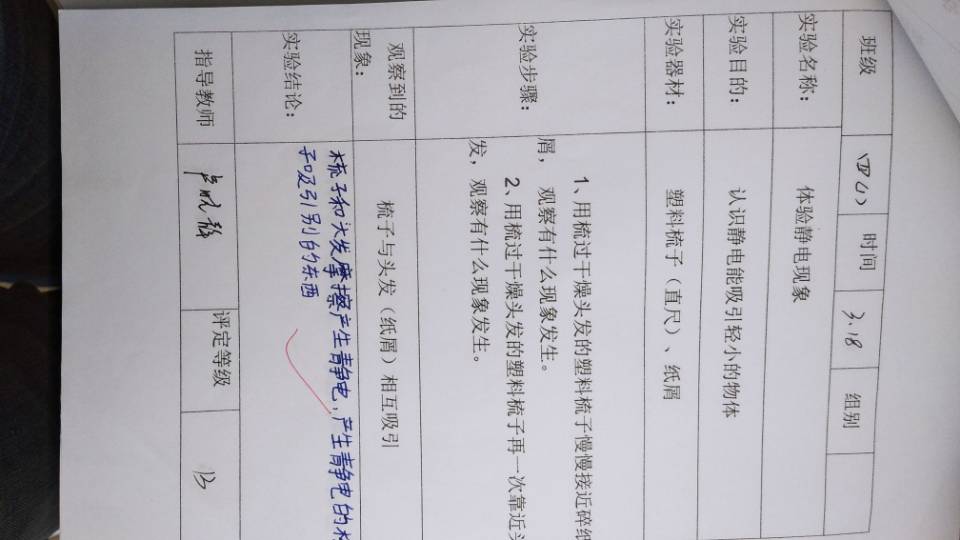 班级 四(1) 时间 3.18 组别
实验名称： 体验静电现象
实验目的： 认识静电能吸引轻小的物体
实验器材： 塑料梳子（直尺）、纸屑
实验步骤：
1、用梳过干燥头发的塑料梳子慢慢接近碎纸
屑， 观察有什么现象发生。
2、用梳过干燥头发的塑料梳子再一次靠近头
发，观察有什么现象发生。
观察到的
现象：
梳子与头发（纸屑）相互吸引
实验结论：
梳子和头发摩擦产生静电，产生静电的梳
子吸引别的东西
指导教师 评定等级 B